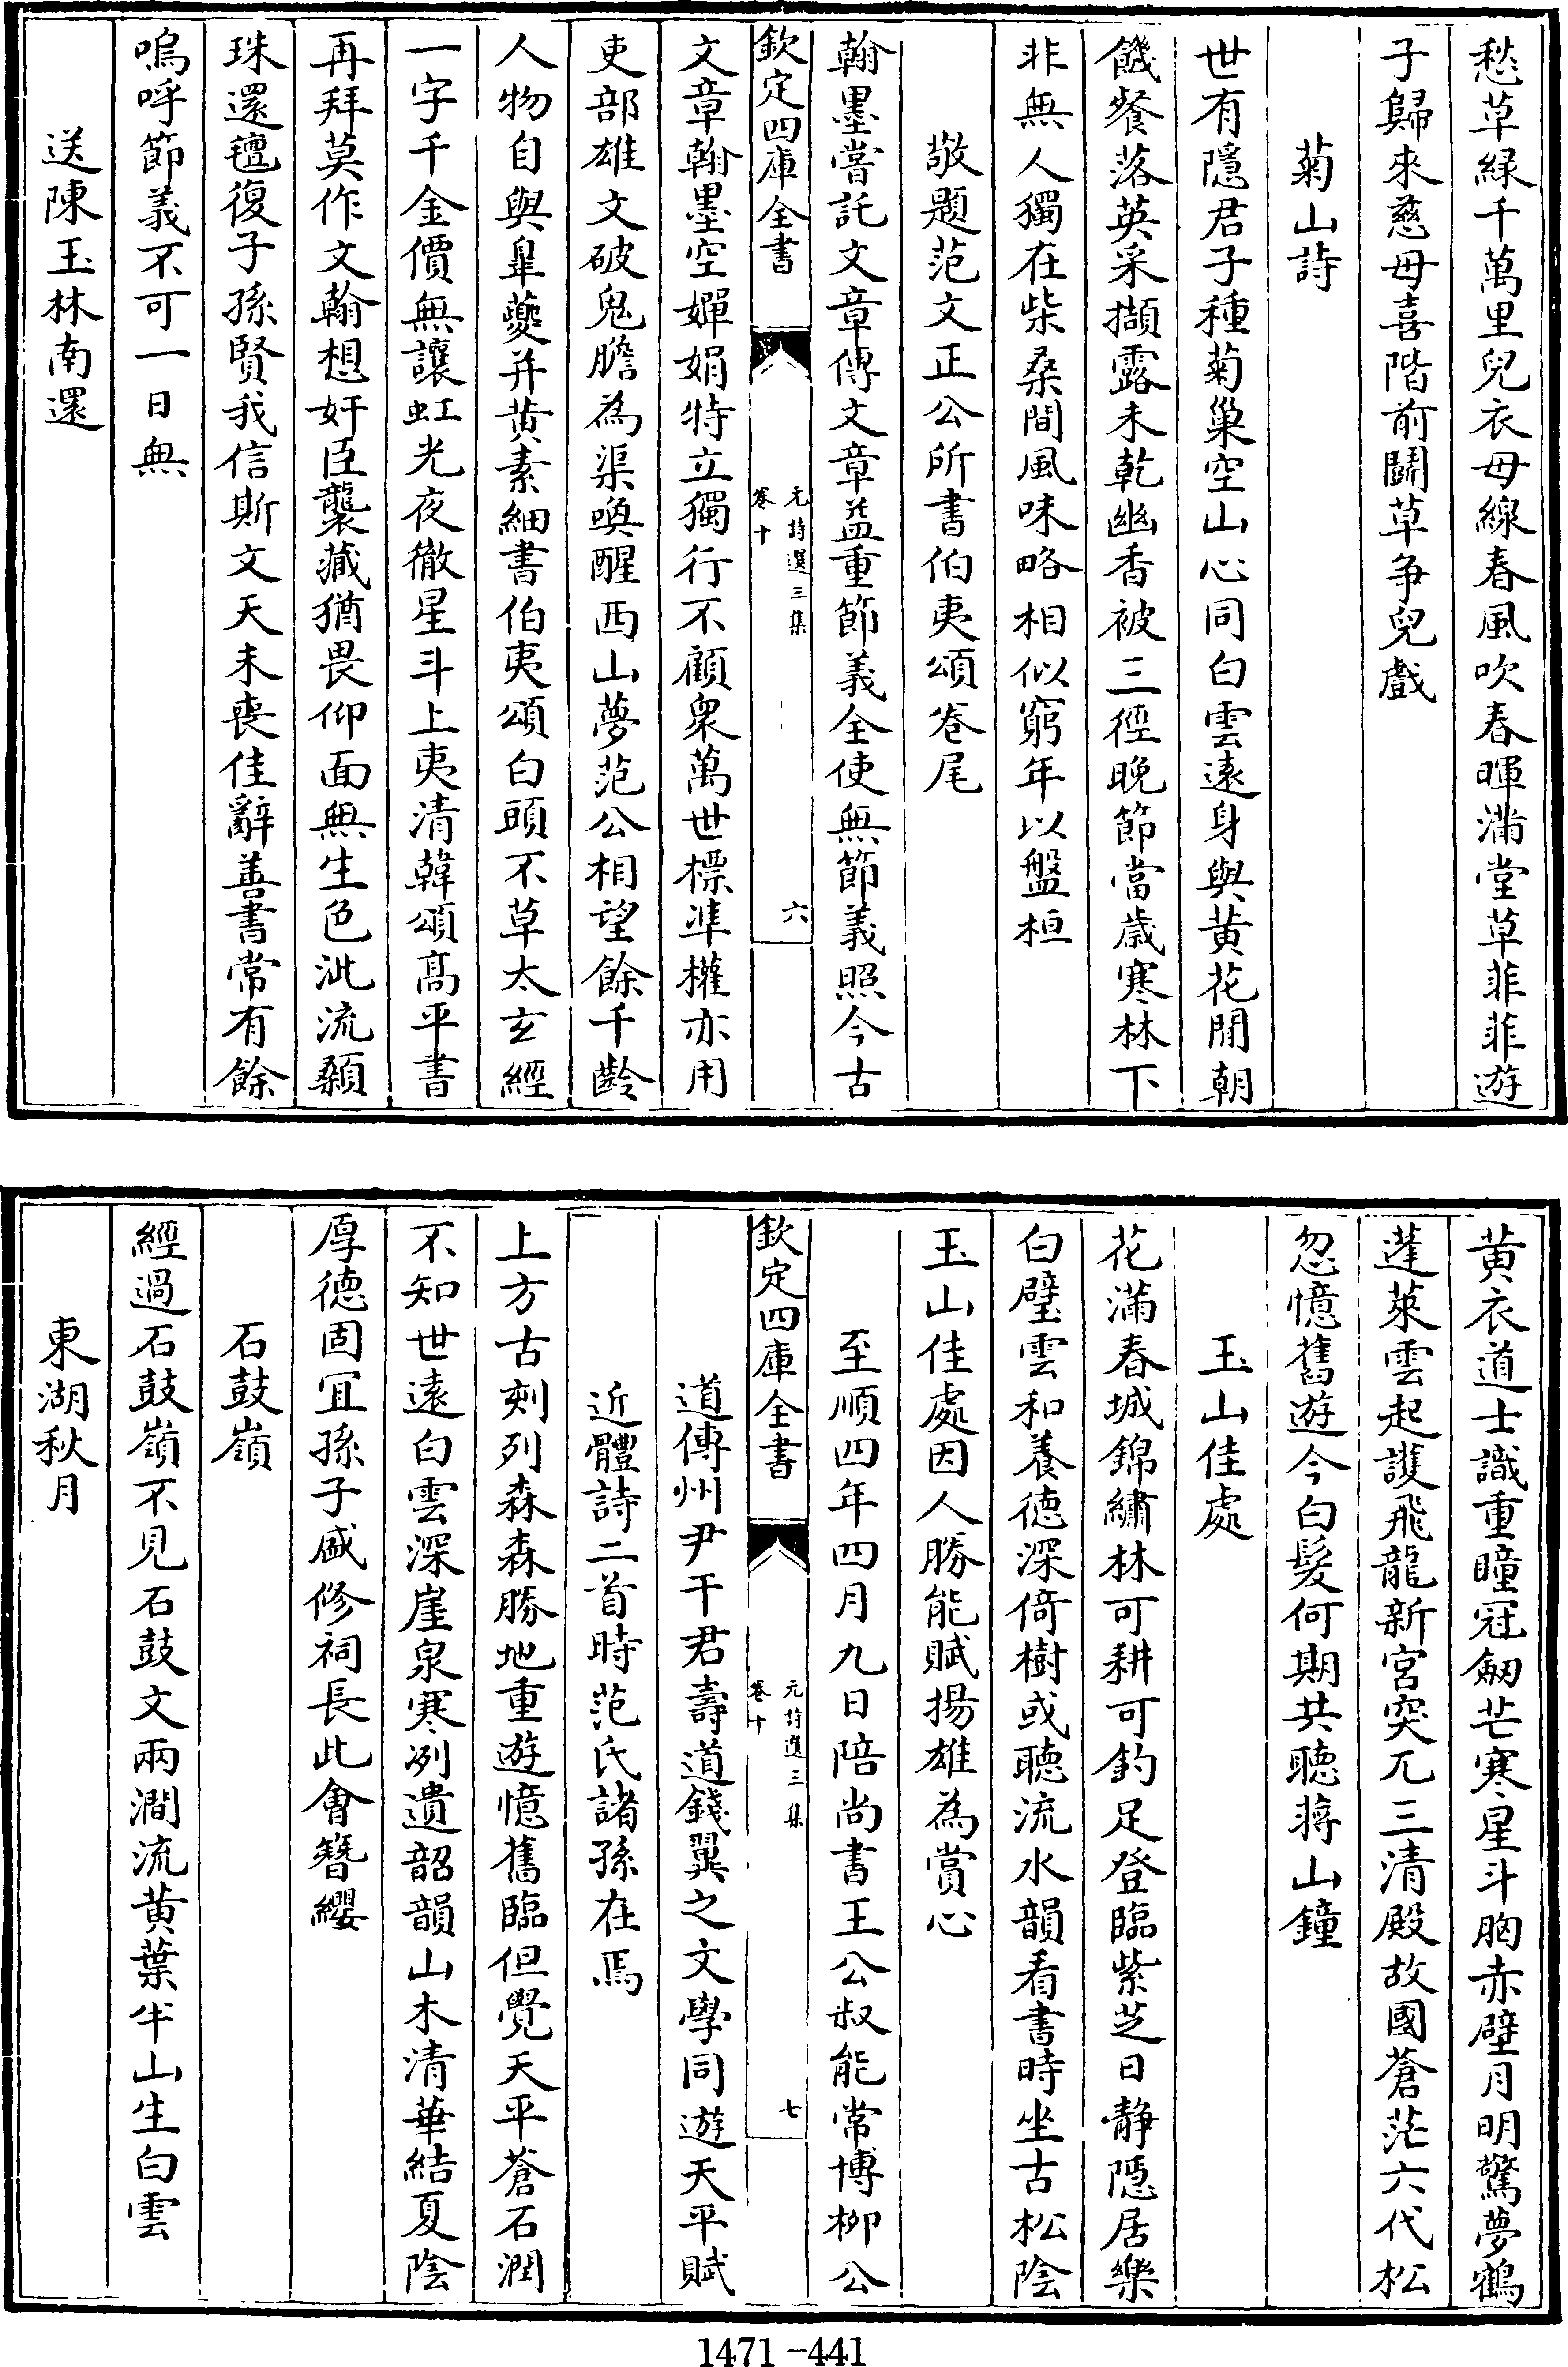 愁草綠千萬里兒衣母線春風吹春暉滿堂草菲菲遊
子歸來慈母喜階前鬭草争兒戲
菊山詩
世有隱君子種菊巢空山心同白雲遠身與黄花閒朝
饑餐落英采擷露未乾幽香被三徑晚節當歲寒林下
非無人獨在柴桑間風味略相似窮年以盤桓
敬題范文正公所書伯夷頌卷尾
翰墨嘗託文章傳文章益重節義全使無節義照今古
欽定四庫全書
元詩選三集
卷十
六
文章翰墨空嬋娟特立獨行不顧衆萬世標準權亦用
吏部雄文破鬼膽為渠喚醒西山夢范公相望餘千齡
人物自與臯夔并黄素細書伯夷頌白頭不草太玄經
一字千金價無讓虹光夜徹星斗上夷清韓頌高平書
再拜莫作文翰想奸臣襲藏猶畏仰面無生色泚流顙
珠還氊復子孫賢我信斯文天未喪佳辭善書常有餘
嗚呼節義不可一日無
送陳玉林南還
黄衣道士識重瞳冠劒芒寒星斗胸赤壁月明驚夢鶴
蓬萊雲起護飛龍新宮突兀三清殿故國蒼茫六代松
忽憶舊遊今白髮何期共聽蔣山鐘
玉山佳處
花滿春城錦繡林可耕可釣足登臨紫芝日静隱居樂
白璧雲和養德深倚樹或聽流水韻看書時坐古松陰
玉山佳處因人勝能賦揚雄為賞心
至順四年四月九日陪尚書王公叔能常博柳公
欽定四庫全書
元詩選三集
卷十
七
道傳州尹干君壽道錢翼之文學同遊天平賦
近體詩二首時范氏諸孫在焉
上方古刹列森森勝地重遊憶舊臨但覺天平蒼石潤
不知世遠白雲深崖泉寒冽遺韶韻山木清華結夏陰
厚德固宜孫子盛修祠長此會簪纓
石鼓嶺
經過石鼓嶺不見石鼓文兩澗流黄葉半山生白雲
東湖秋月
1471-441